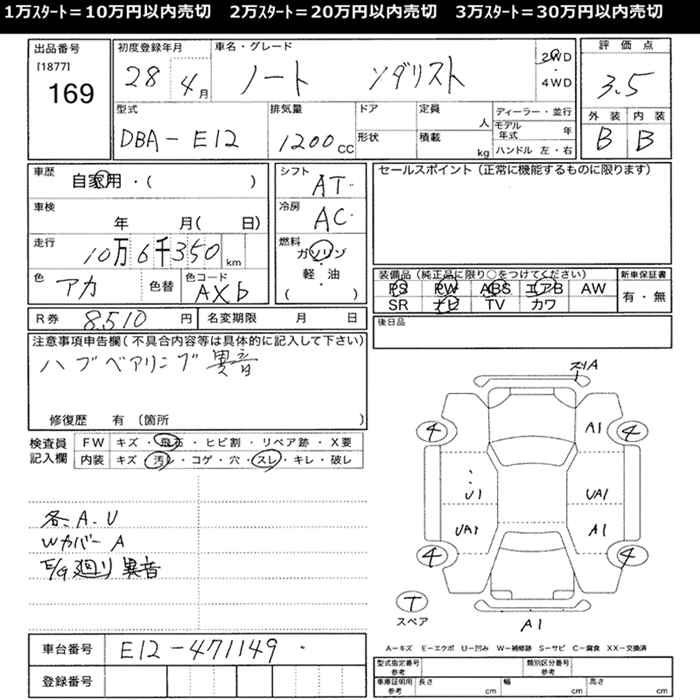 1万ｽﾀｰﾄ＝10万円以内売切　2万ｽﾀｰﾄ＝20万円以内売切　3万ｽﾀｰﾄ＝30万円以内売切
出品番号
[1877]
169
初度登録年月
28 4月
車名・グレード
ノート
2WD
・
4WD
評価点
3.5
外装 内装
B B
型式
DBA-E12
排気量
1200cc
ドア
形状
定員
人
積載
kg
ディーラー・並行
モデル年式 年
ハンドル 左・右
車歴
自家用・( )
車検
年 月( 日)
走行
10万6千350km
色
アカ
色替
色コード
AXb
シフト
AT
冷房
AC
燃料
ガソリン
・
軽・油
( )
セールスポイント（正常に機能するものに限ります）
装備品（純正品に限り○をつけてください）
PS PW ABS エアB AW
SR ナビ TV カワ
新車保証書
有・無
後日品
R券 8,510 円
名変期限 月 日
注意事項申告欄（不具合内容等は具体的に記入して下さい）
ハブベアリング異音
修復歴 有（箇所 ）
検査員
記入欄
FW キズ・飛石・ヒビ割・リペア跡・X要
内装 キズ・汚レ・コゲ・穴・スレ・キレ・破レ
各A.U
WカバーA
E/G廻り異音
車台番号 E12-471149
登録番号
スリA
4 A1 4
U1 UA1
UA1 A1
4 4
T
スペア
A1
A－キズ E－エクボ U－凹み W－補修跡 S－サビ C－腐食 XX－交換済
型式指定番号
参考
類別区分番号
参考
車庫証明用
参考
長さ cm
幅 cm
高さ cm